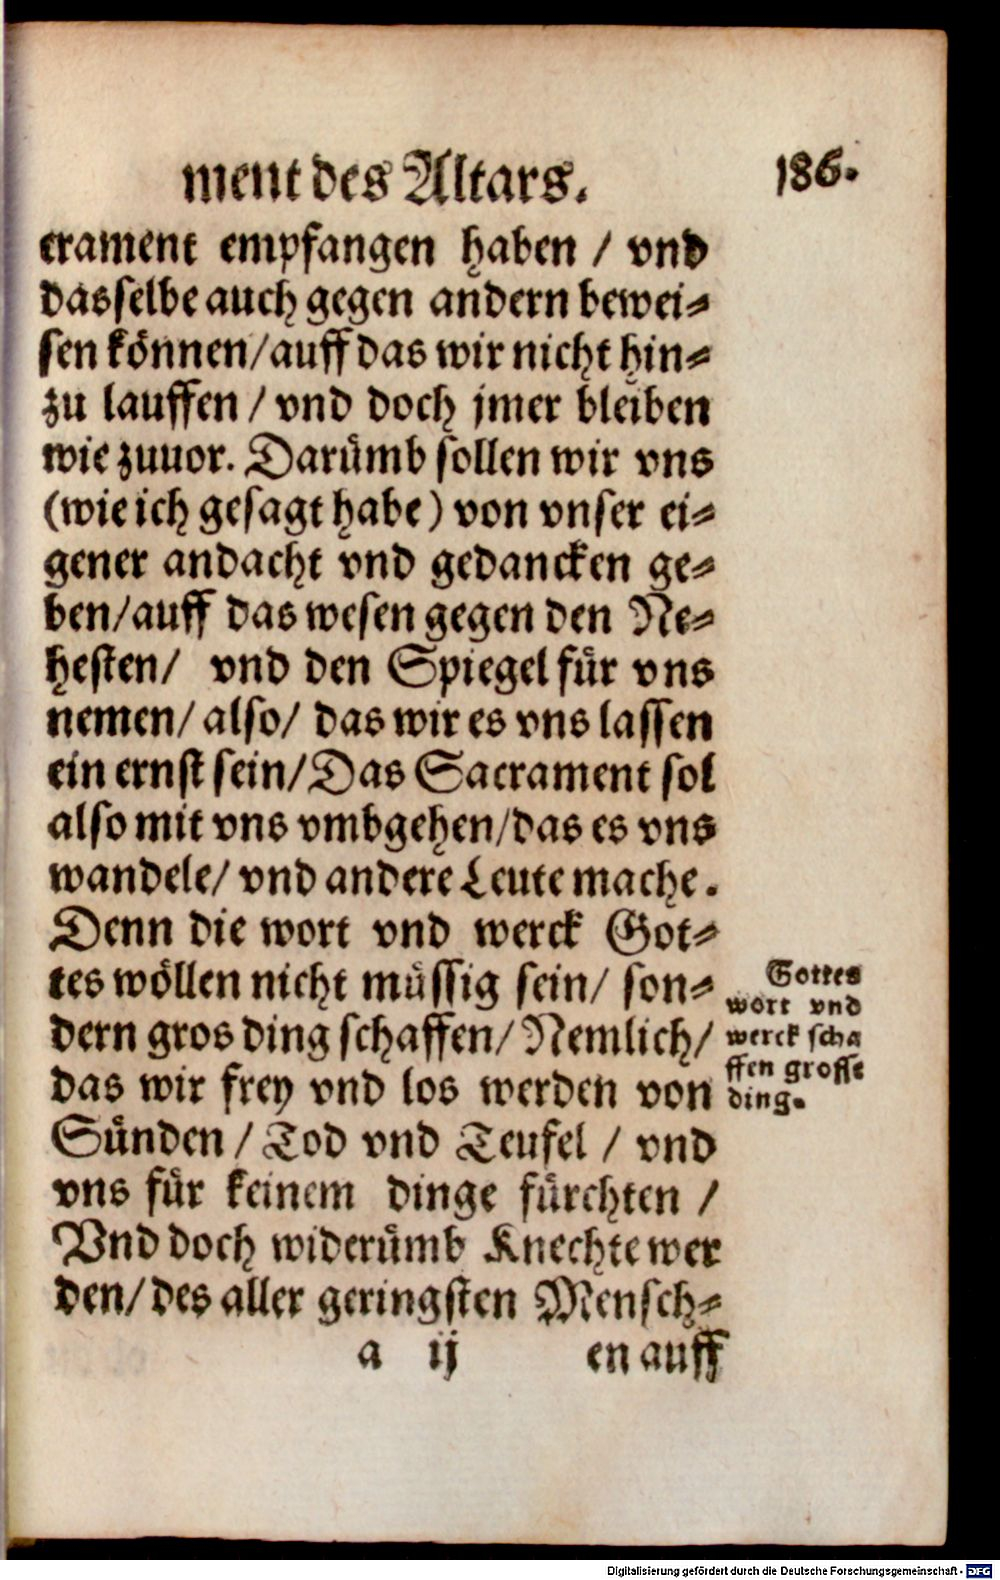 ment des Altars.
186.
crament empfangen haben / vnd
dasselbe auch gegen andern bewei⸗
sen können/auff das wir nicht hin⸗
zu lauffen / vnd doch jmer bleiben
wie zuuor. Darümb sollen wir vns
(wie ich gesagt habe) von vnser ei⸗
gener andacht vnd gedancken ge⸗
ben/auff das wesen gegen den Ne⸗
hesten/ vnd den Spiegel für vns
nemen/ also/ das wir es vns lassen
ein ernst sein/Das Sacrament sol
also mit vns vmbgehen/das es vns
wandele/ vnd andere Leute mache.
Denn die wort vnd werck Got⸗
tes wöllen nicht müssig sein/ son⸗
dern gros ding schaffen/ Nemlich/
das wir frey vnd los werden von
Sünden / Tod vnd Teufel / vnd
vns für keinem dinge fürchten /
Vnd doch widerümb Knechte wer
den/ des aller geringsten Mensch⸗
a ij en auff
Gottes
wort vnd
werck scha
ffen grosse
ding.
Digitalisierung gefördert durch die Deutsche Forschungsgemeinschaft - DFG